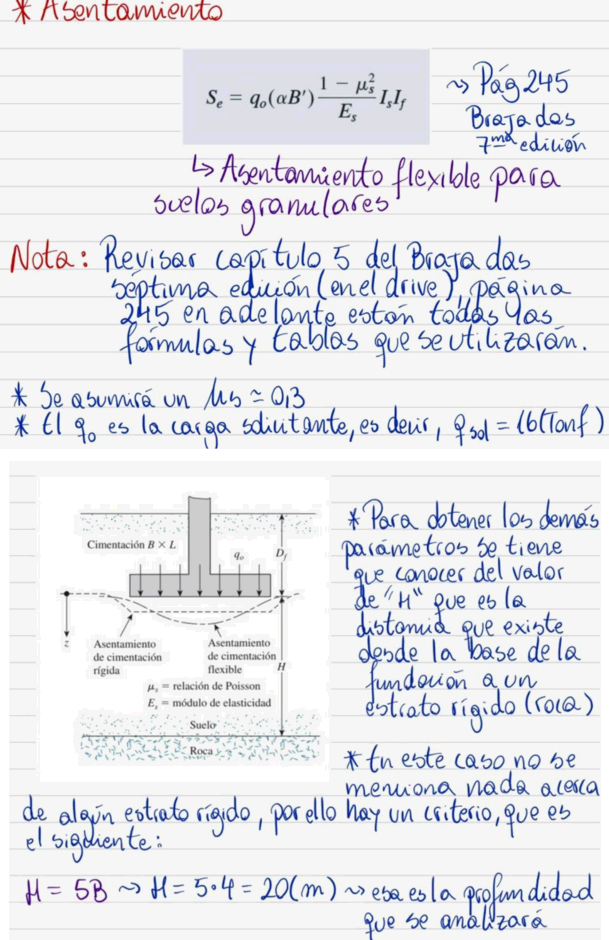 * Asentamiento
S_e = q_o(αB') (1 − μ_s^2)/E_s I_s I_f
~> Pág 245
Braja das
7ma edición
↳ Asentamiento flexible para
suelos granulares
Nota: Revisar capítulo 5 del Braja das
séptima edición (en el drive), página
245 en adelante están todas las
fórmulas y tablas que se utilizarán.
* Se asumirá un μs ≃ 0,3
* El q_o es la carga solicitante, es decir, q_sol = 16(Tonf)
Cimentación B × L
q_o
D_f
z
Asentamiento
de cimentación
rígida
Asentamiento
de cimentación
flexible
H
μ_s = relación de Poisson
E_s = módulo de elasticidad
Suelo
Roca
* Para obtener los demás
parámetros se tiene
que conocer del valor
de "H" que es la
distancia que existe
desde la base de la
fundación a un
estrato rígido (roca)
* En este caso no se
menciona nada acerca
de algún estrato rígido, por ello hay un criterio, que es
el siguiente:
H = 5B ~> H = 5•4 = 20(m) ~> esa es la profundidad
que se analizará